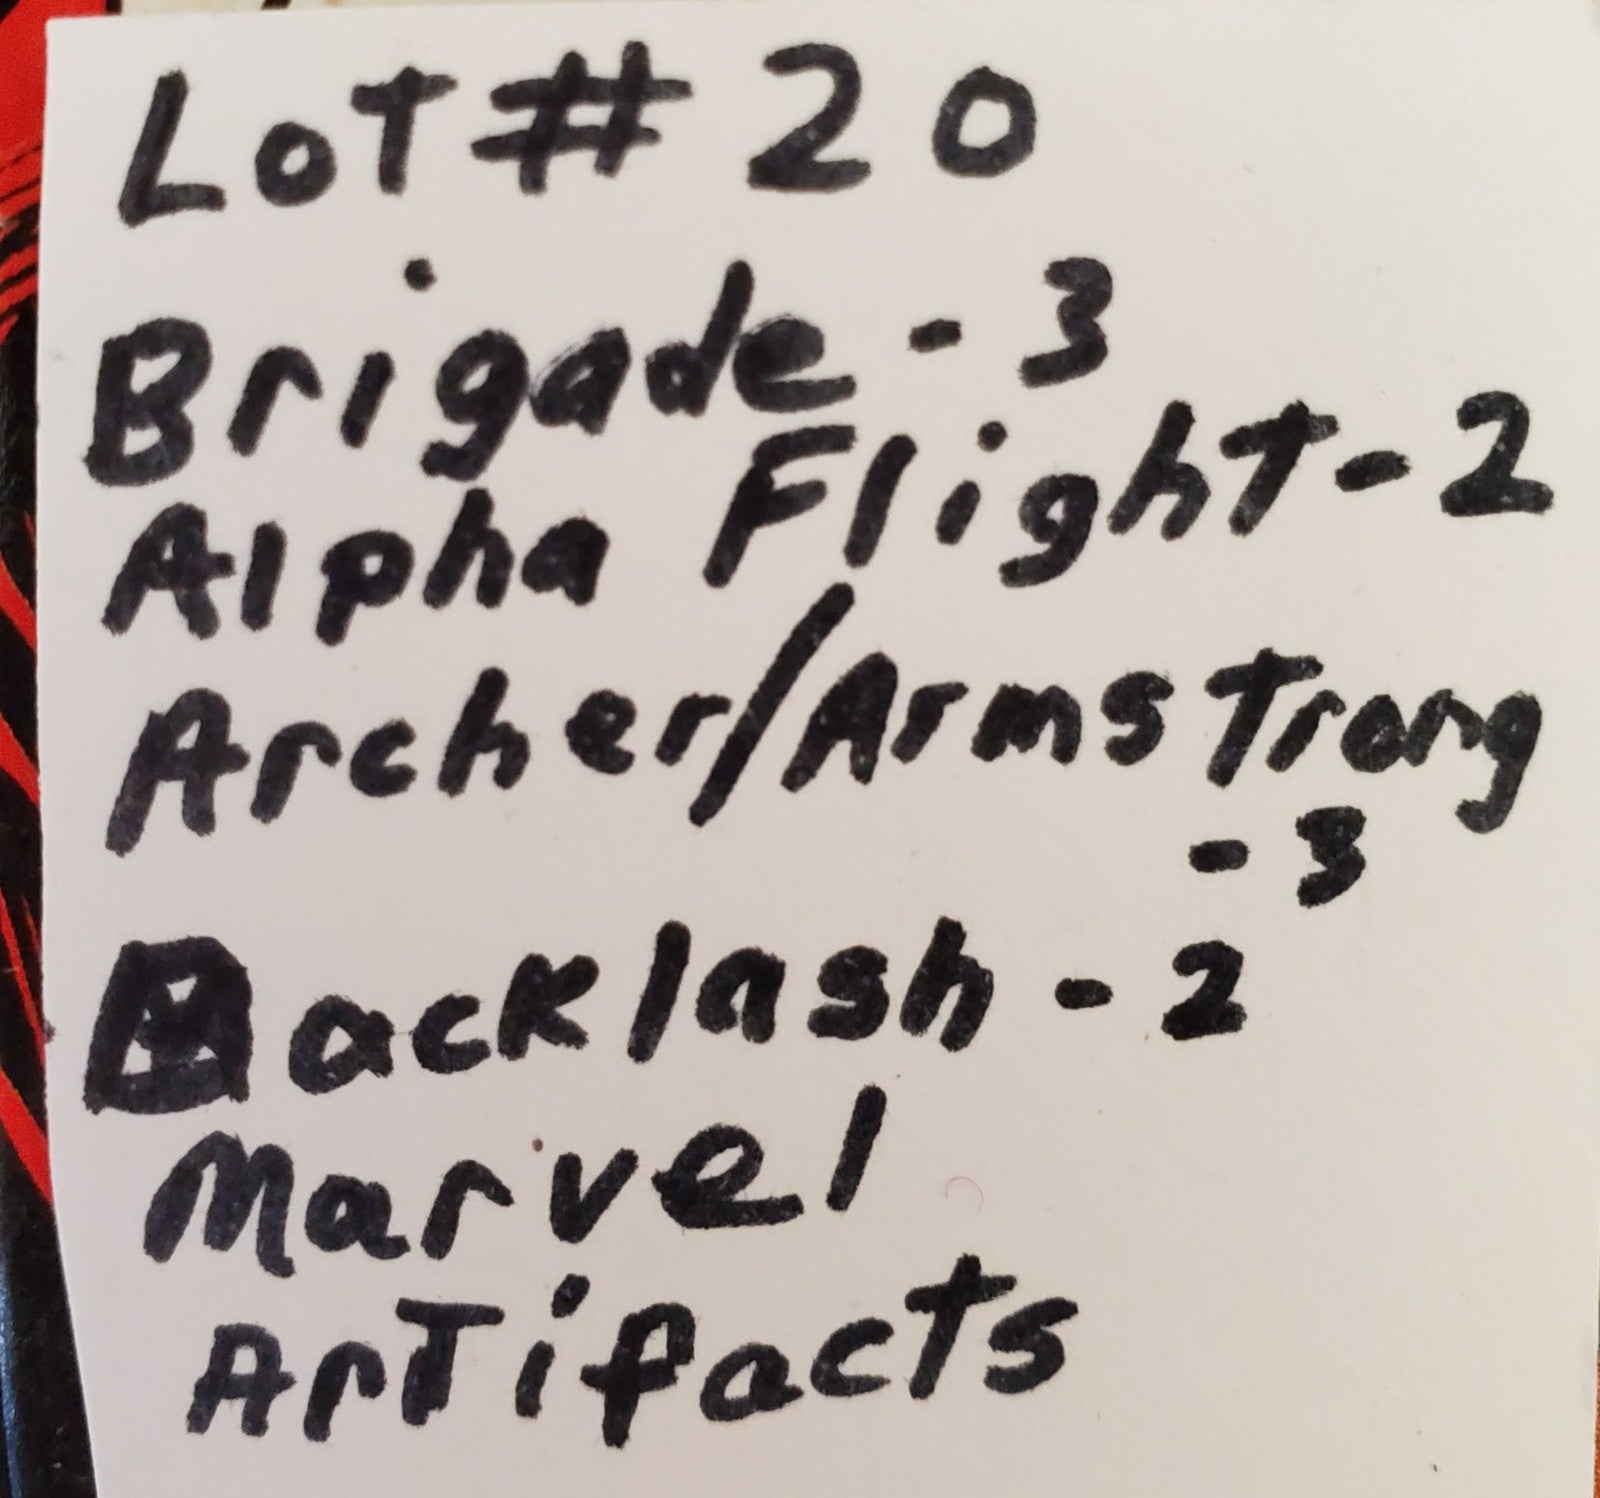 Lot # 20
Brigade - 3
Alpha Flight - 2
Archer/Armstrong
- 3
Backlash - 2
Marvel
Artifacts